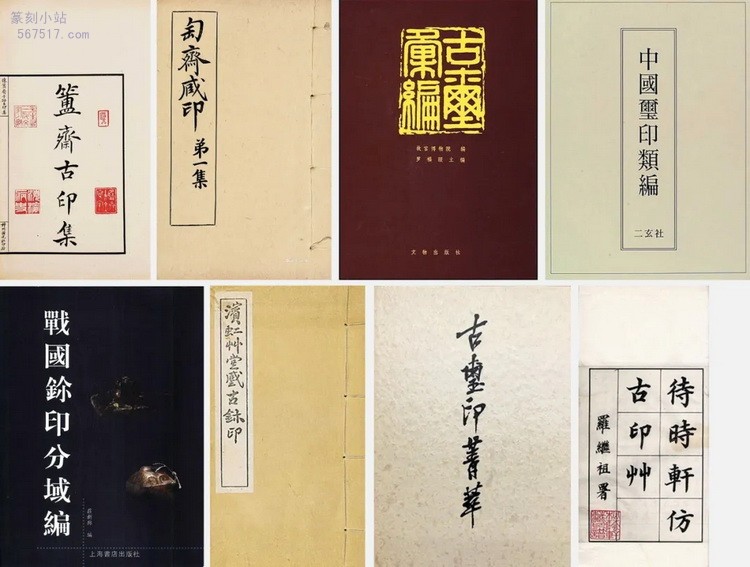 篆刻小站
567517.com
簠齋古印集
匋齋臧印
第一集
古璽彙編
故宫博物院 编
罗福颐主编
文物出版社
中國璽印類編
二玄社
戰國鉨印分域編
莊新興 編
上海書店出版社
濱虹艸堂藏古鉨印
古璽印菁華
待時軒仿
古印艸
羅繼祖署